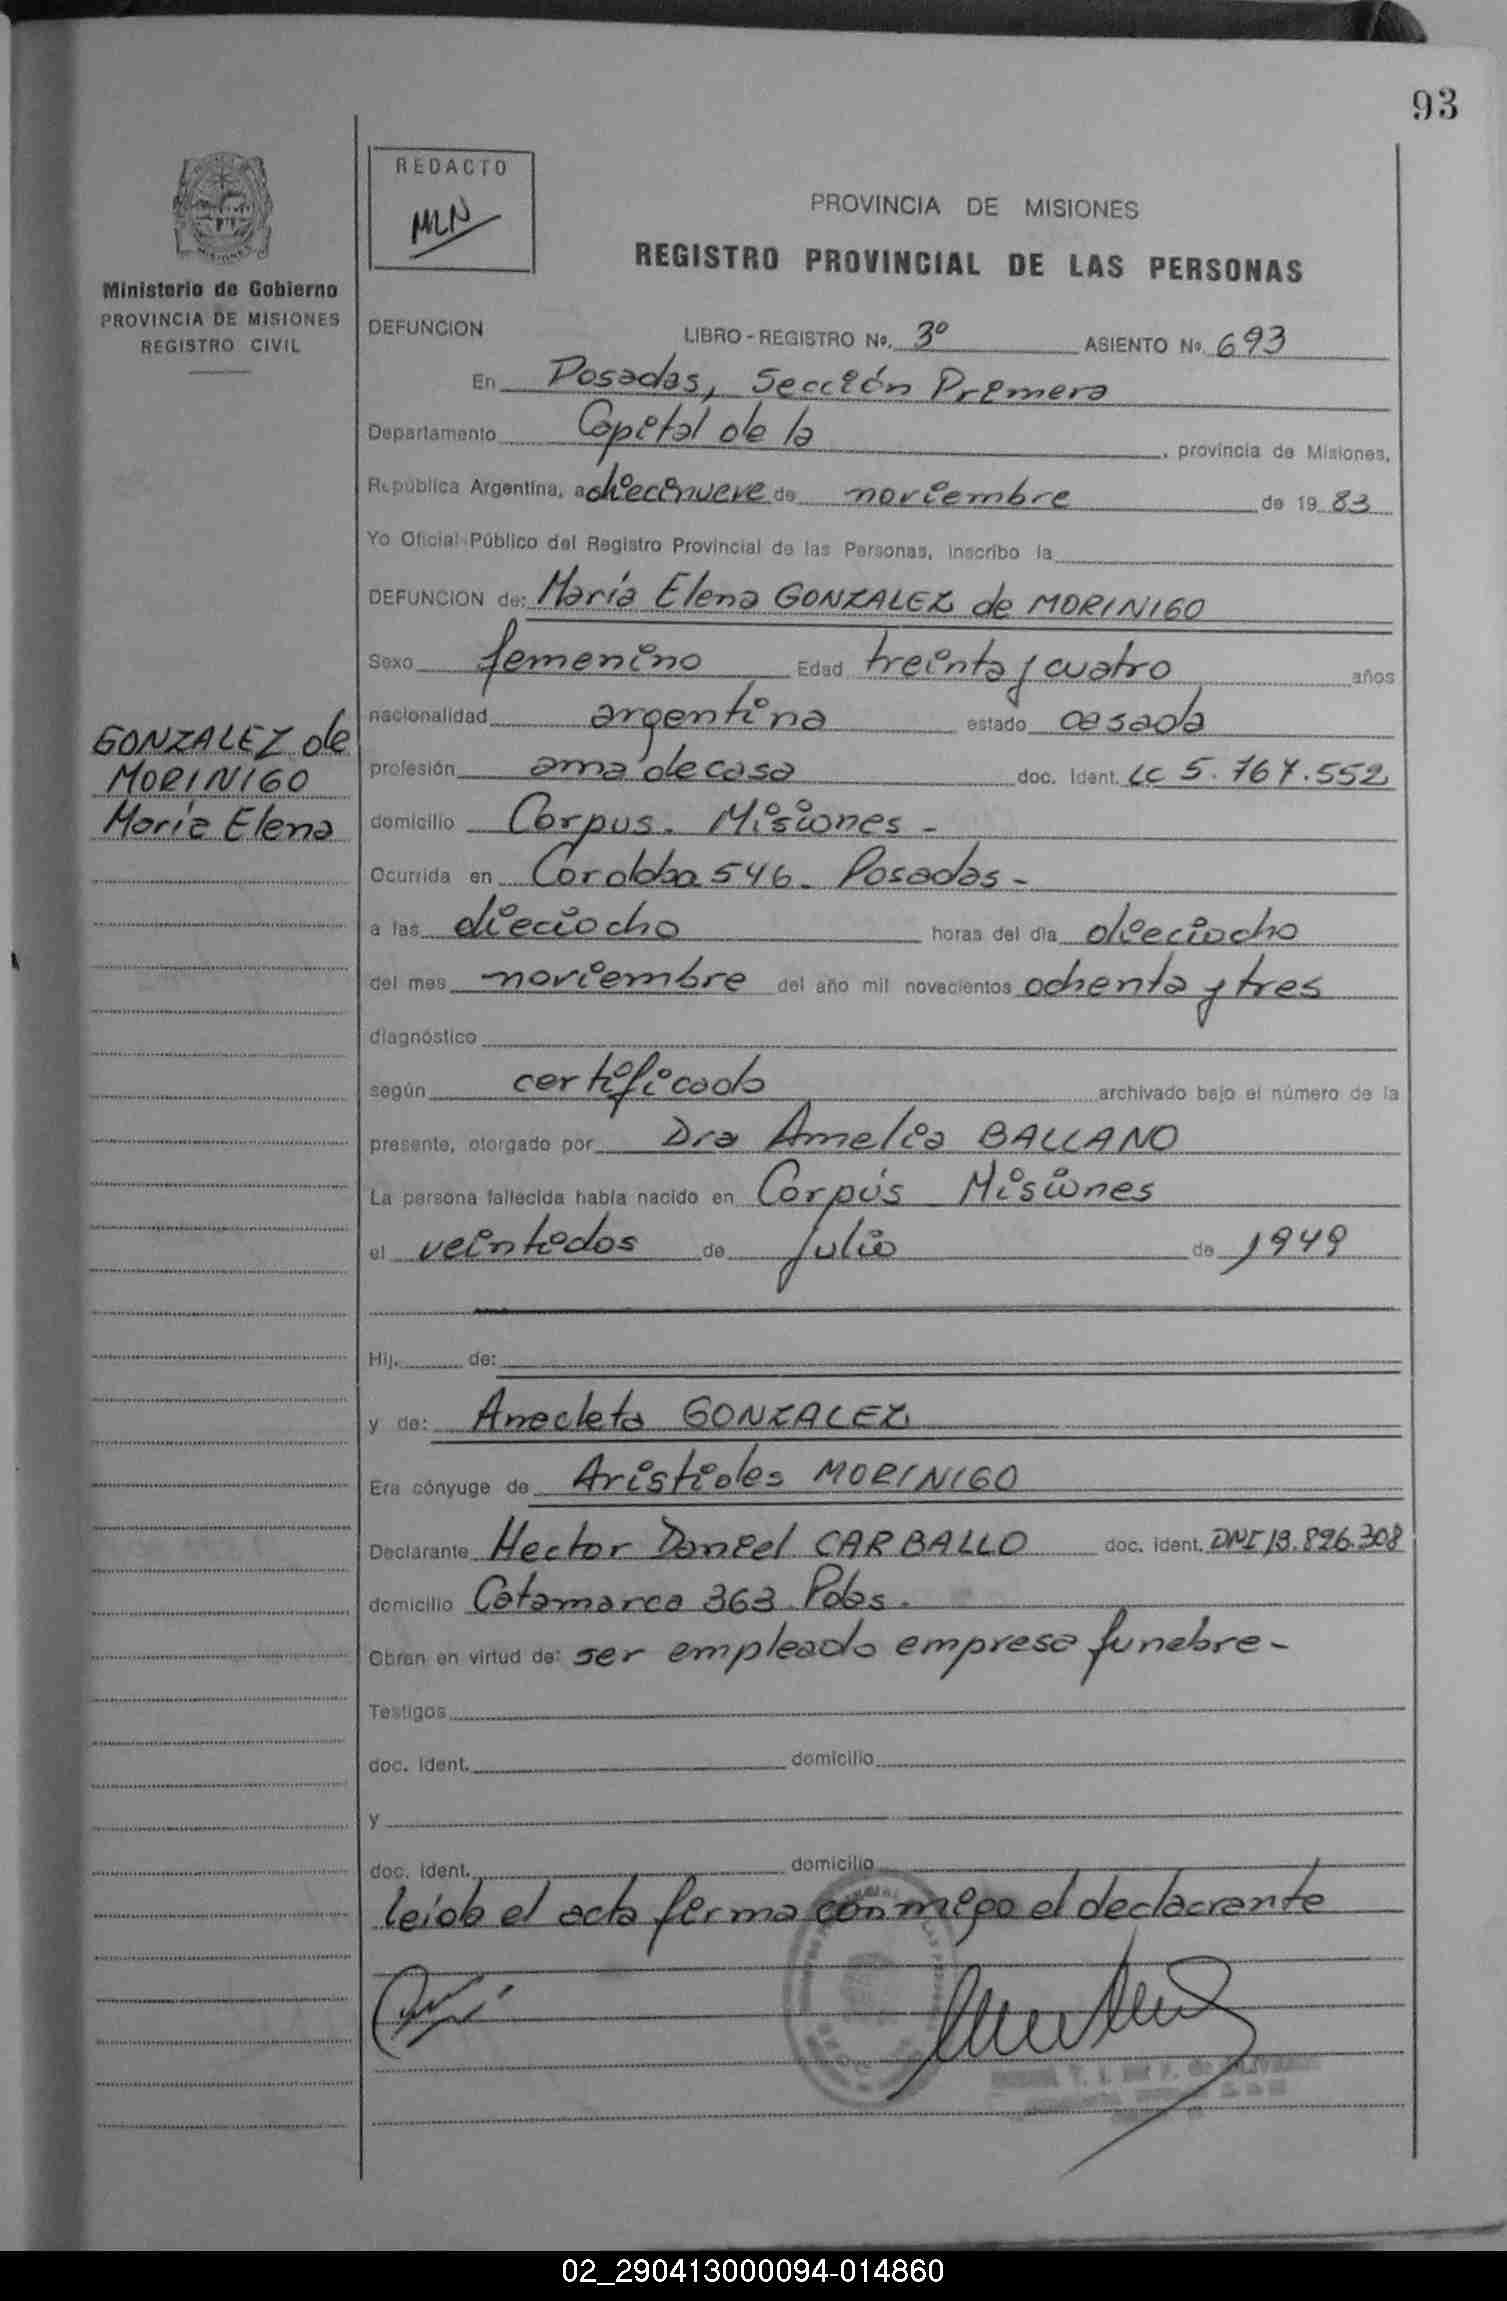 93
REDACTO
MLN
Ministerio de Gobierno
PROVINCIA DE MISIONES
REGISTRO CIVIL
PROVINCIA DE MISIONES
REGISTRO PROVINCIAL DE LAS PERSONAS
DEFUNCION LIBRO - REGISTRO Nº. 3º ASIENTO Nº. 693
En Posadas, Sección Primera
Departamento Capital de la , provincia de Misiones,
República Argentina, a diecinueve de noviembre de 19 83
Yo Oficial Público del Registro Provincial de las Personas, inscribo la
DEFUNCION de: María Elena GONZALEZ de MORINIGO
Sexo femenino Edad treinta y cuatro años
nacionalidad argentina estado casada
GONZALEZ de
MORINIGO
María Elena
profesión ama de casa doc. Ident. LC 5.767.552
domicilio Corpus. Misiones -
Ocurrida en Cordoba 546. Posadas -
a las dieciocho horas del día dieciocho
del mes noviembre del año mil novecientos ochenta y tres
diagnóstico
según certificado archivado bajo el número de la
presente, otorgado por Dra Amelia BALLANO
La persona fallecida había nacido en Corpus Misiones
el veintidos de julio de 1949
Hij. de:
y de: Anecleta GONZALEZ
Era cónyuge de Aristides MORINIGO
Declarante Hector Daniel CARBALLO doc. ident. DNI 13.826.308
domicilio Catamarca 363 Pdas.
Obran en virtud de: ser empleado empresa funebre -
Testigos
doc. ident. domicilio
y
doc. ident. domicilio
leida el acta firma conmigo el declacrante
02_290413000094-014860